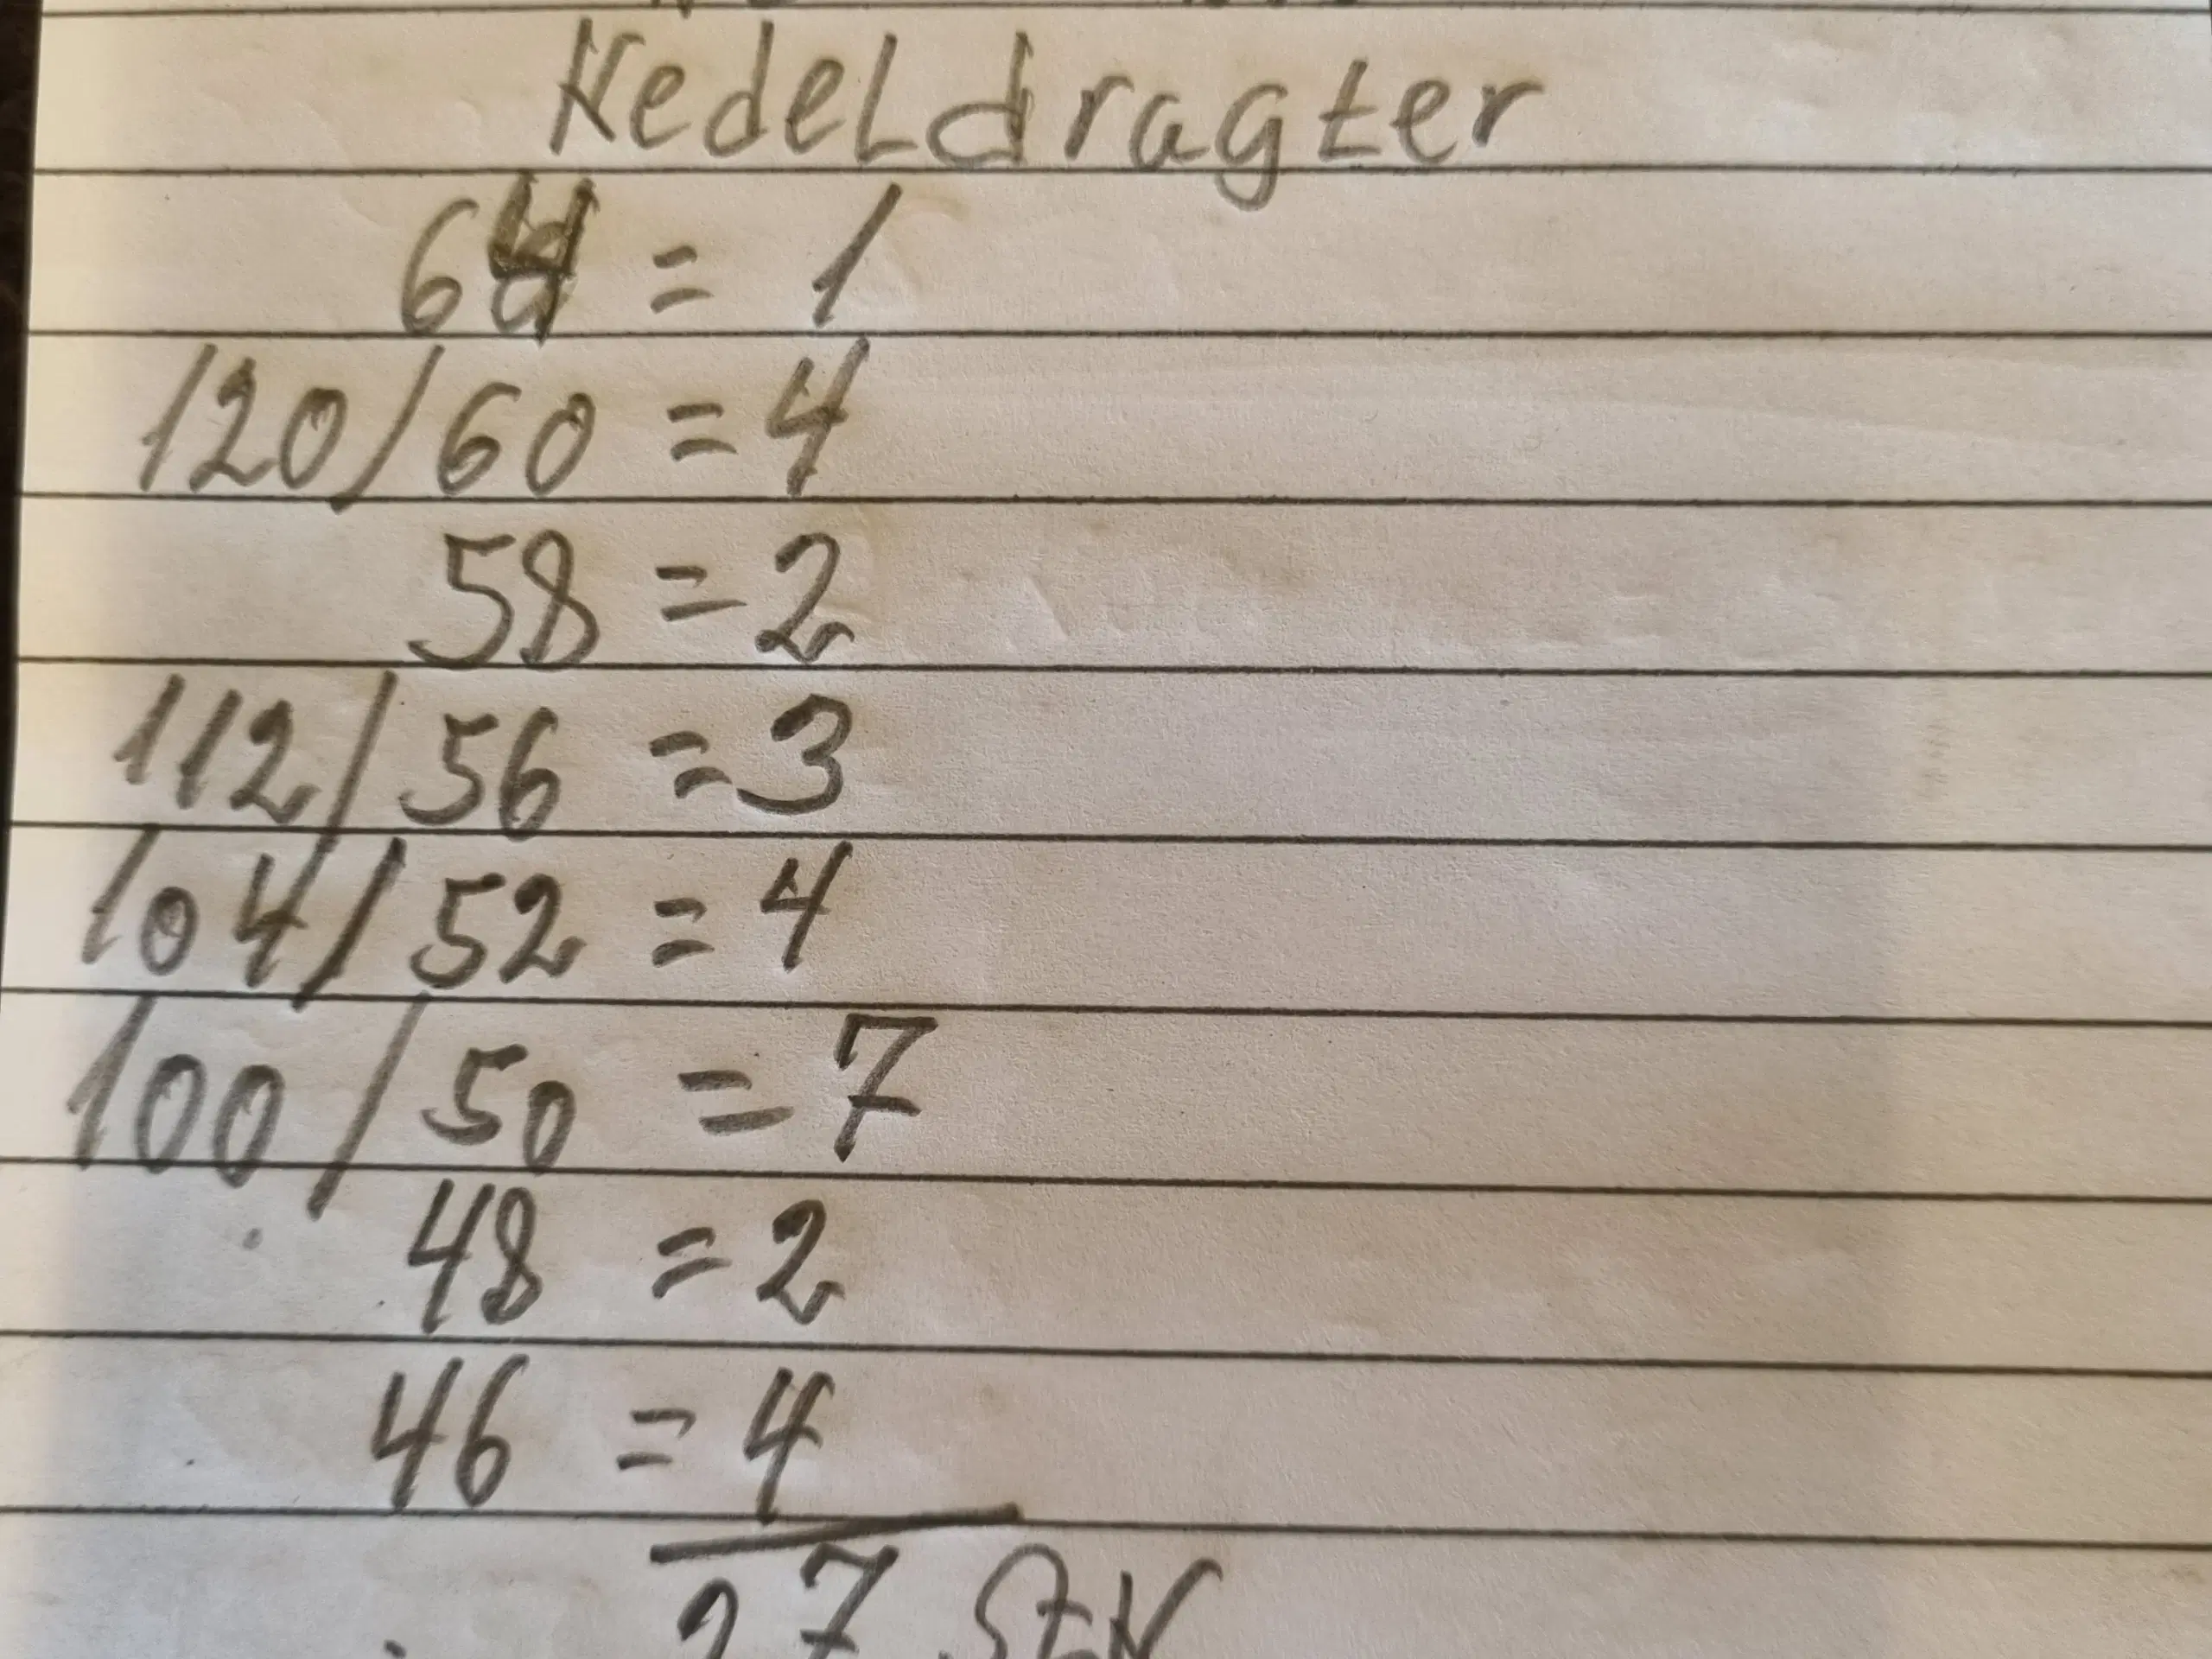 Kedeldragter
64 = 1
120/60 = 4
58 = 2
112/56 = 3
104/52 = 4
100/50 = 7
48 = 2
46 = 4
27 StK